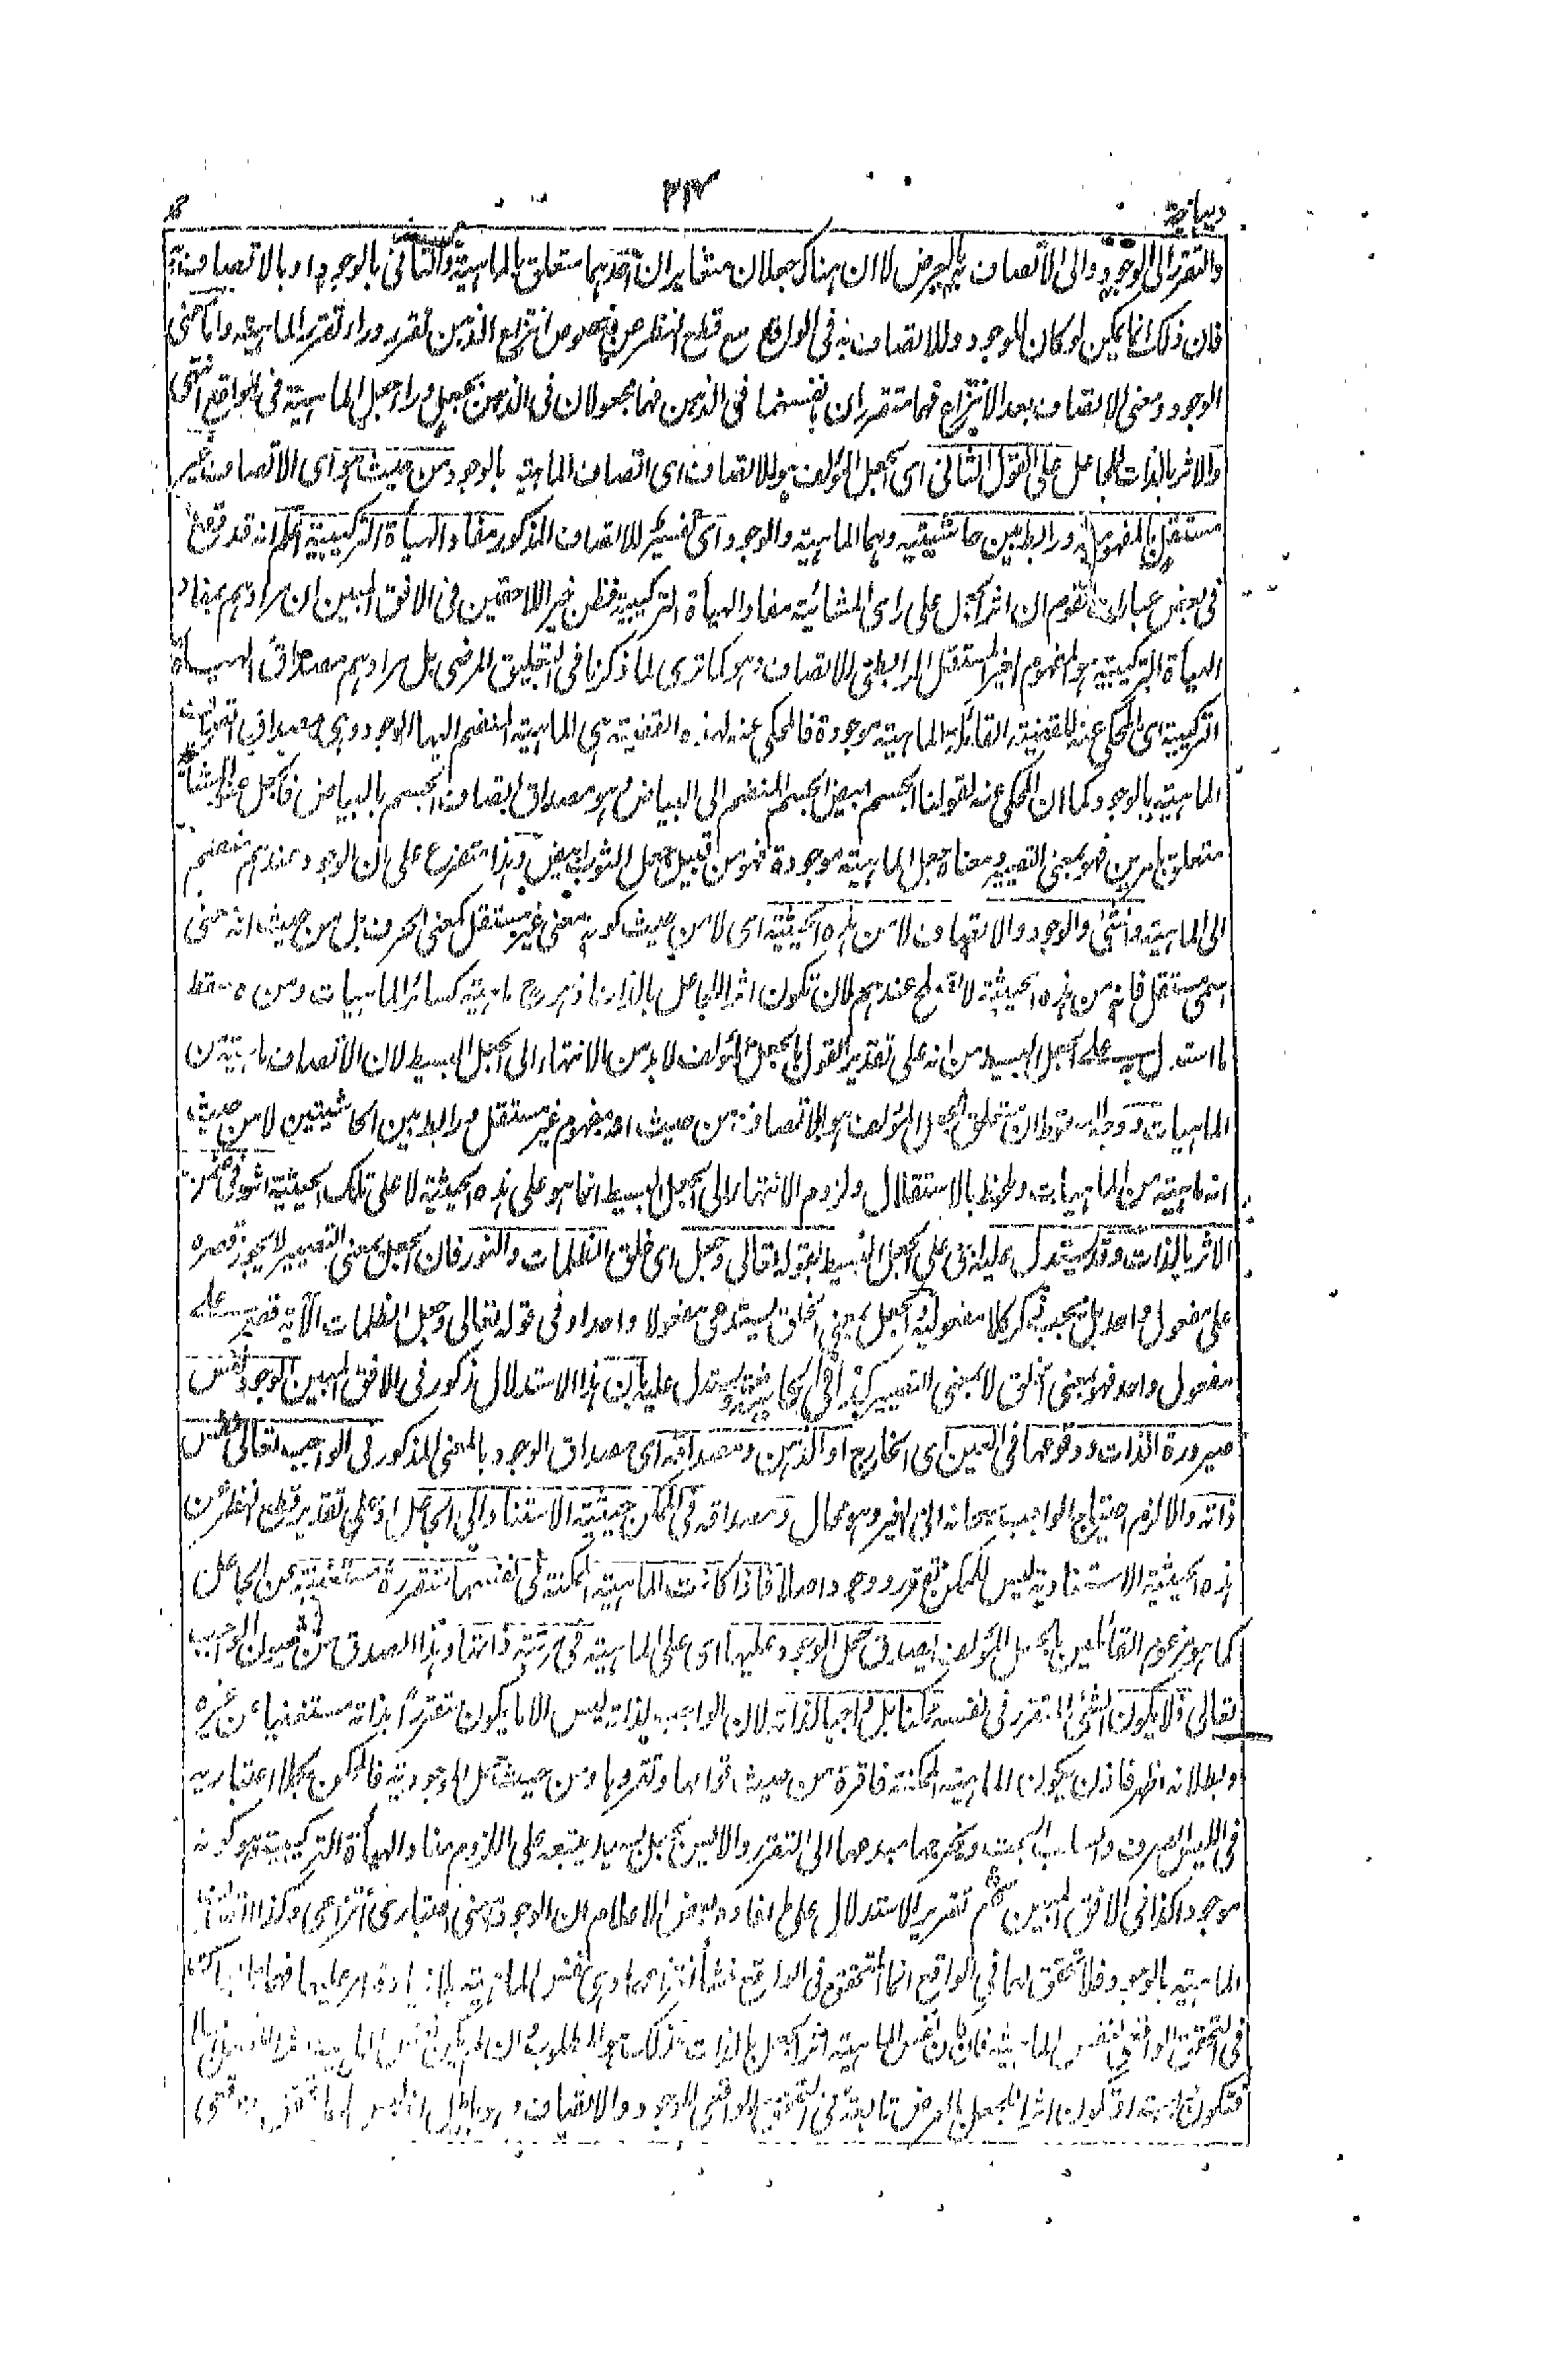 ديباجة
والتقرر الى الوجود والى الاتصاف به بالعرض لا ان هناك جعلان متغايران احدهما متعلق بالماهية والثانى بالوجود او بالاتصاف به
فان ذلك انما يمكن لو كان للوجود وللاتصاف به فى الواقع مع قطع النظر عن خصوص انتزاع الذهن تقرر وراء تقرر الماهية واما معنى
الوجود ومعنى الاتصاف بعد الانتزاع فهما متقرران بانفسهما فى الذهن فهما مجعولان فى الذهن بجعل وراء جعل الماهية فى الواقع انتهى
والاثر بالذات للجاعل على القول الثانى اى الجعل المؤلف هو الاتصاف اى اتصاف الماهية بالوجود من حيث هو اى الاتصاف غير
مستقل بالمفهومية ورابط بين حاشيتيه وهما الماهية والوجود اى تفسير للاتصاف المذكور مفاد الهيأة التركيبية اعلم انه قد وقع
فى بعض عبارات القوم ان اثر الجعل على راى المشائية مفاد الهيأة التركيبية فظن خير اللاحقين فى الافق المبين ان مرادهم بمفاد
الهيأة التركيبية هو المفهوم الغير المستقل الرابطى للاتصاف وهو كما ترى لما ذكرنا فى التعليق المرضى بل مرادهم مصداق الهيأة
التركيبية اى المحكى عنه للقضية القائلة الماهية موجودة فالمحكى عنه لهذه القضية هى الماهية المنضم اليها الوجود وهى مصداق اتصاف
الماهية بالوجود كما ان المحكى عنه لقولنا الجسم ابيض الجسم المنضم الى البياض وهو مصداق اتصاف الجسم بالبياض فالجعل عند المشائية
متعلق بامرين فهو بمعنى التصيير ومعناه جعل الماهية موجودة فهو من قبيل جعل الثوب ابيض وهذا متفرع على ان الوجود عندهم منضم
الى الماهية والوجود والاتصاف لا من هذه الحيثية اى لا من حيث كونه معنى غير مستقل كمعنى الحرف بل من حيث انه معنى
اسمى مستقل فانه من هذه الحيثية لا يصلح عندهم لان تكون اثر الجاعل بالذات ماهية كسائر الماهيات ومن ه سقط
ما استدل به على الجعل البسيط من انه على تقدير القول بالجعل المؤلف لا بد من الانتهاء الى الجعل البسيط لان الاتصاف ماهية من
الماهيات ووجه السقوط ان متعلق الجعل المؤلف هو الاتصاف من حيث انه مفهوم غير مستقل ورابط بين الحاشيتين لا من حيث
انه ماهية من الماهيات وملحوظ بالاستقلال ولزوم الانتهاء الى الجعل البسيط انما هو على هذه الحيثية لا على تلك الحيثية
الاثر بالذات وقد يستدل عليه اى على الجعل البسيط بقوله تعالى وجعل اى خلق الظلمات والنور فان الجعل بمعنى التصيير لا يجوز قصره
على مفعول واحد بل يجب ذكر كلا مفعوليه والجعل بمعنى الخلق يستدعى مفعولا واحدا وفى قوله تعالى وجعل الظلمات الآية قصر على
مفعول واحد فهو بمعنى الخلق لا بمعنى التصيير يستدل عليه بان هذا الاستدلال مذكور فى الافق المبين الوجود نفس
صيرورة الذات ووقوعها فى العين اى الخارج او الذهن ومصداقه اى مصداق الوجود بالمعنى المذكور فى الواجب تعالى نفس
ذاته والا لزم احتياج الواجب سبحانه الى الغير وهو محال ومصداقه فى الممكن حيثية الاستناد الى الجاعل اذ على تقدير قطع النظر عن
هذه الحيثية الاستنادية ليس للممكن تقرر ووجود اصلا فاذا كانت الماهية الممكنة فى نفسها متقررة مستغنية عن الجاعل
كما هو مزعوم القائلين بالجعل المؤلف يصدق حمل الوجود عليها اى على الماهية فى مرتبة ذاتها وهذا الصدق من شيون الواجب
تعالى فلا يكون الشئ المتقرر فى نفسه ممكنا بل واجبا لذاته لان الواجب لذاته ليس الا ما يكون متقررا بذاته مستغنيا عن غيره
وبطلانه اظهر فاذن يكون الماهية الممكنة فاقرة من حيث قوامها وتقررها ومن حيث حمل الموجودية فالممكن بكلا اعتباريه
فى الليس الصرف والسلب البحت ويخرجهما مبدعهما الى التقرر والايس بجعل بسيط يتبعه على اللزوم مفاد الهيأة التركيبية وهو كونه
موجودا كذا فى الافق المبين ثم تقرير الاستدلال على ما افاده بعض الاعلام ان الوجود معنى اعتبارى انتزاعى وكذا اتصاف
الماهية بالوجود فلا تحقق لهما فى الواقع انما المتحقق فى الواقع منشأ انتزاعهما وهى نفس الماهية بلا زيادة امر عليها فهما تابعان
فى التحقق الواقعى لنفس الماهية فان كان نفس الماهية اثر الجعل بالذات فذلك هو المطلوب وان لم يكن نفس الماهية
فتكون اثر الجعل بالعرض تابعة فى التحقق الواقعى للوجود والاتصاف